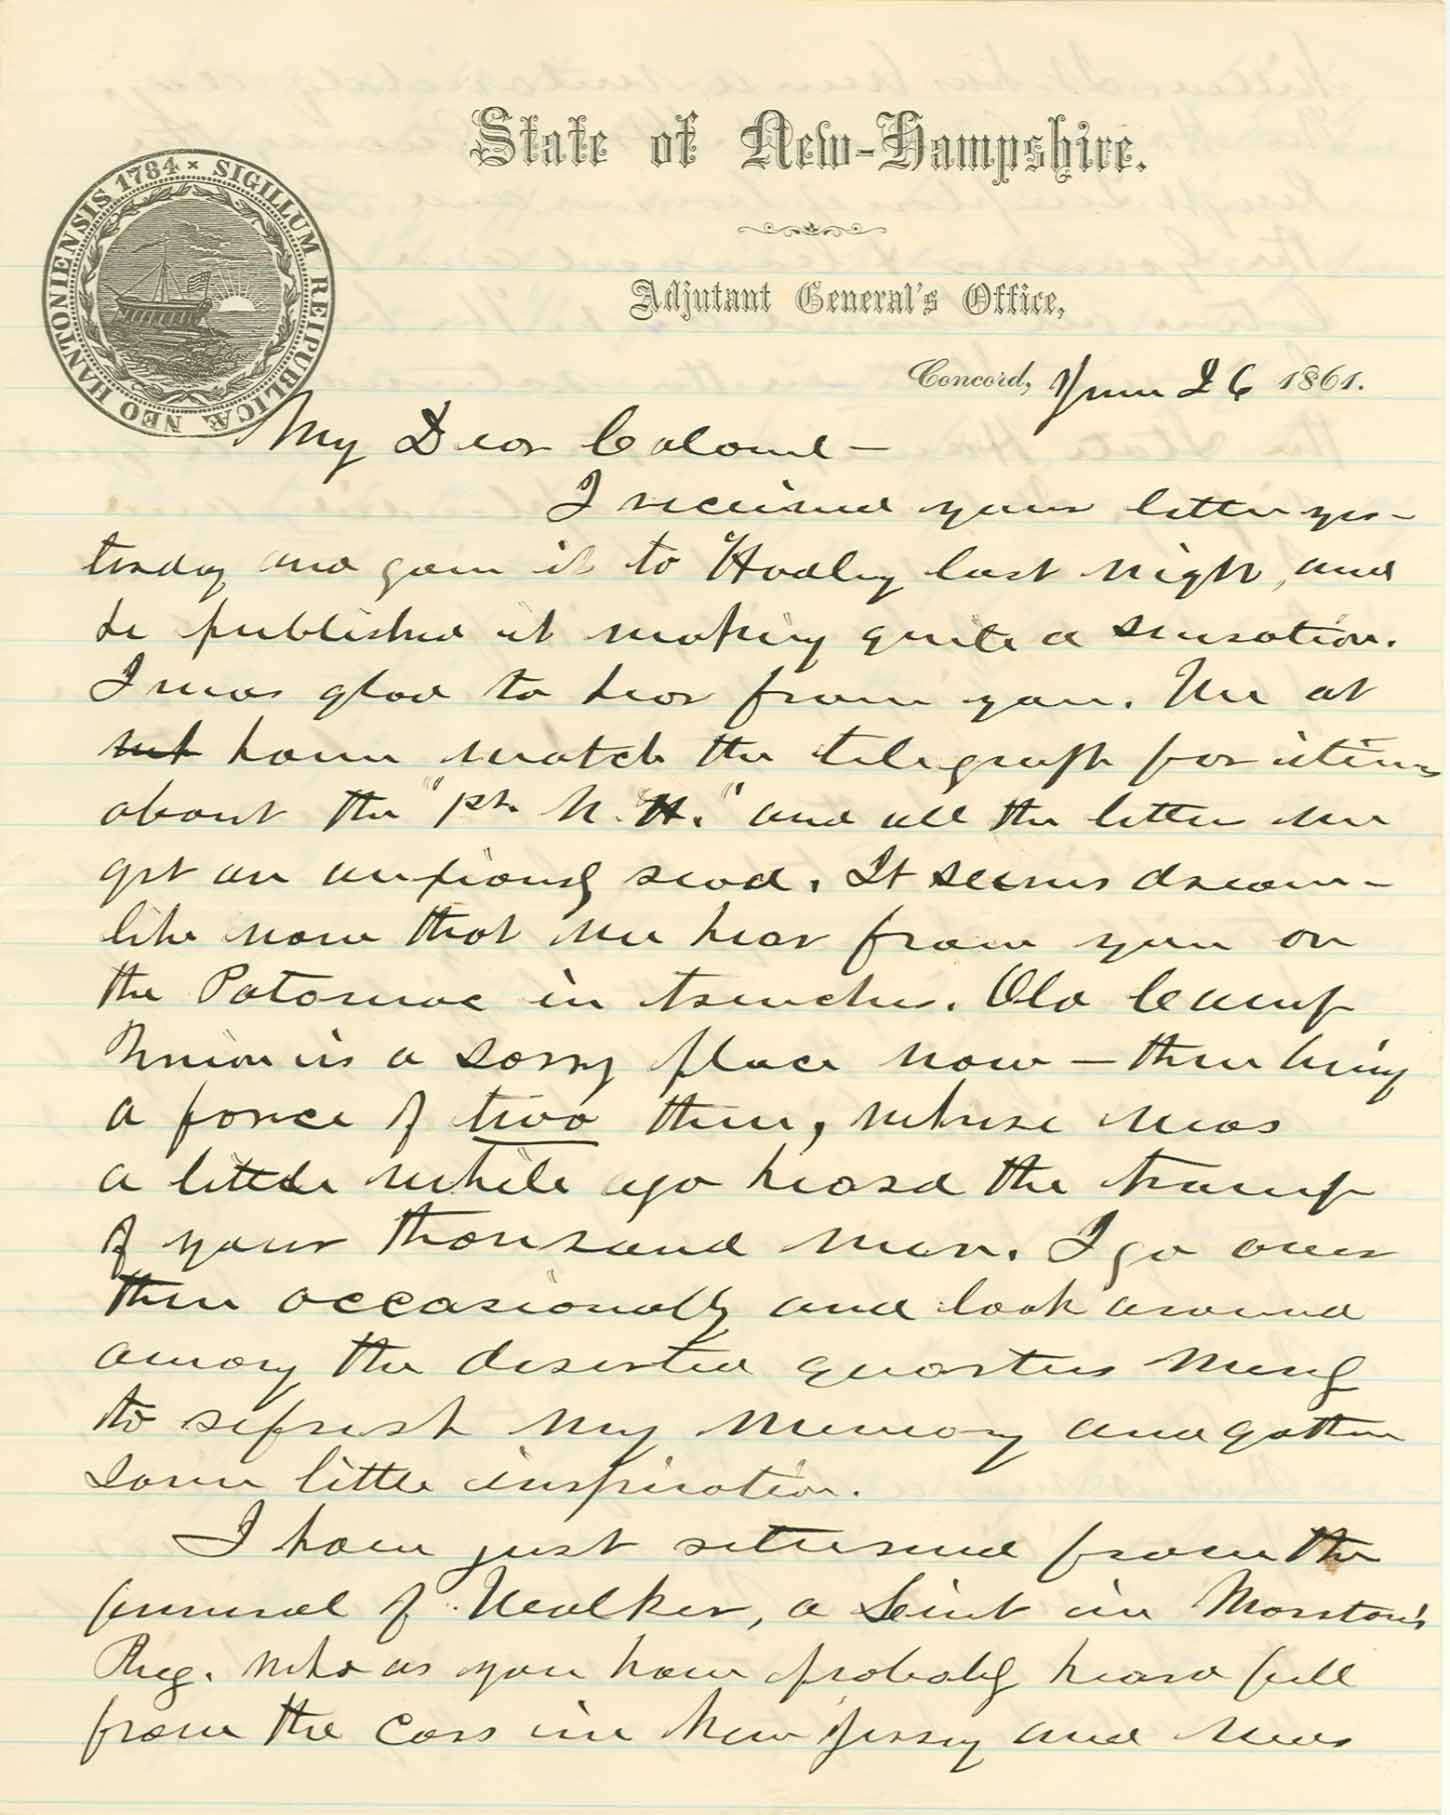 State of New-Hampshire.
SIGILLUM REIPUBLICÆ NEO HANTONIENSIS 1784
Adjutant General's Office,
Concord, June 26 1861.
My Dear Colonel —
I received your letter yes-
terday and gave it to Hadley last night, and
he published it making quite a sensation.
I was glad to hear from you. We at
home watch the telegraph for items
about the "1st N. H." and all the letters we
get an anxiously read. It seems dream-
like now that we hear from you on
the Potomac in trenches. Old Camp
Union is a sorry place now — there being
a force of two there, where was
a little while ago heard the tramp
of your thousand men. I go over
there occasionally and look around
among the deserted quarters merely
to refresh my memory and gather
some little inspiration.
I have just returned from the
funeral of Walker, a Leiut in Marston's
Reg. who as you have probably heard fell
from the cars in New Jersey and was